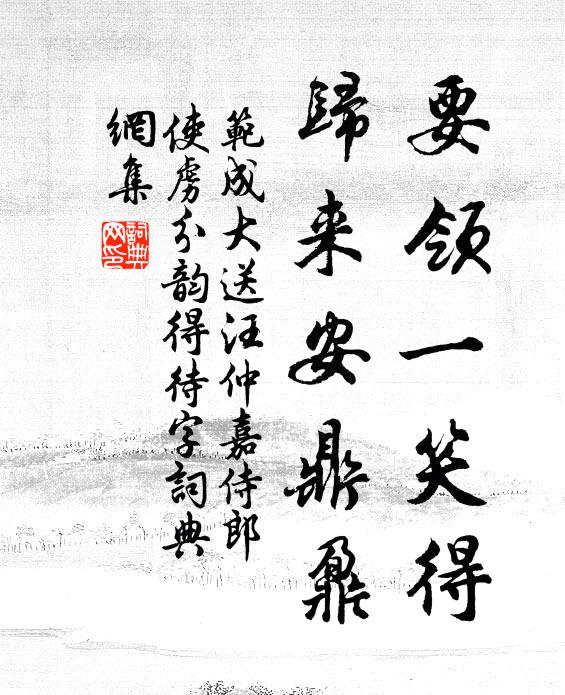 要领一笑得
歸来安鼎鼐
範成大送汪仲嘉侍郎
使虜分韵得待字詞典
網集
詞典網印